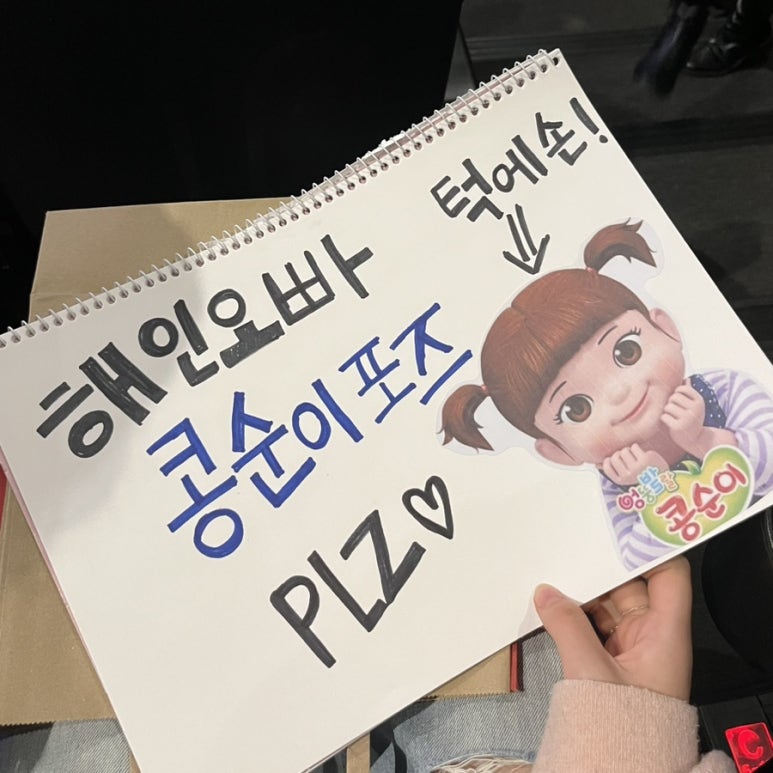 턱에손!
⇓
해인오빠
콩순이 포즈
PLZ♡
엉뚱발랄
콩순이
C